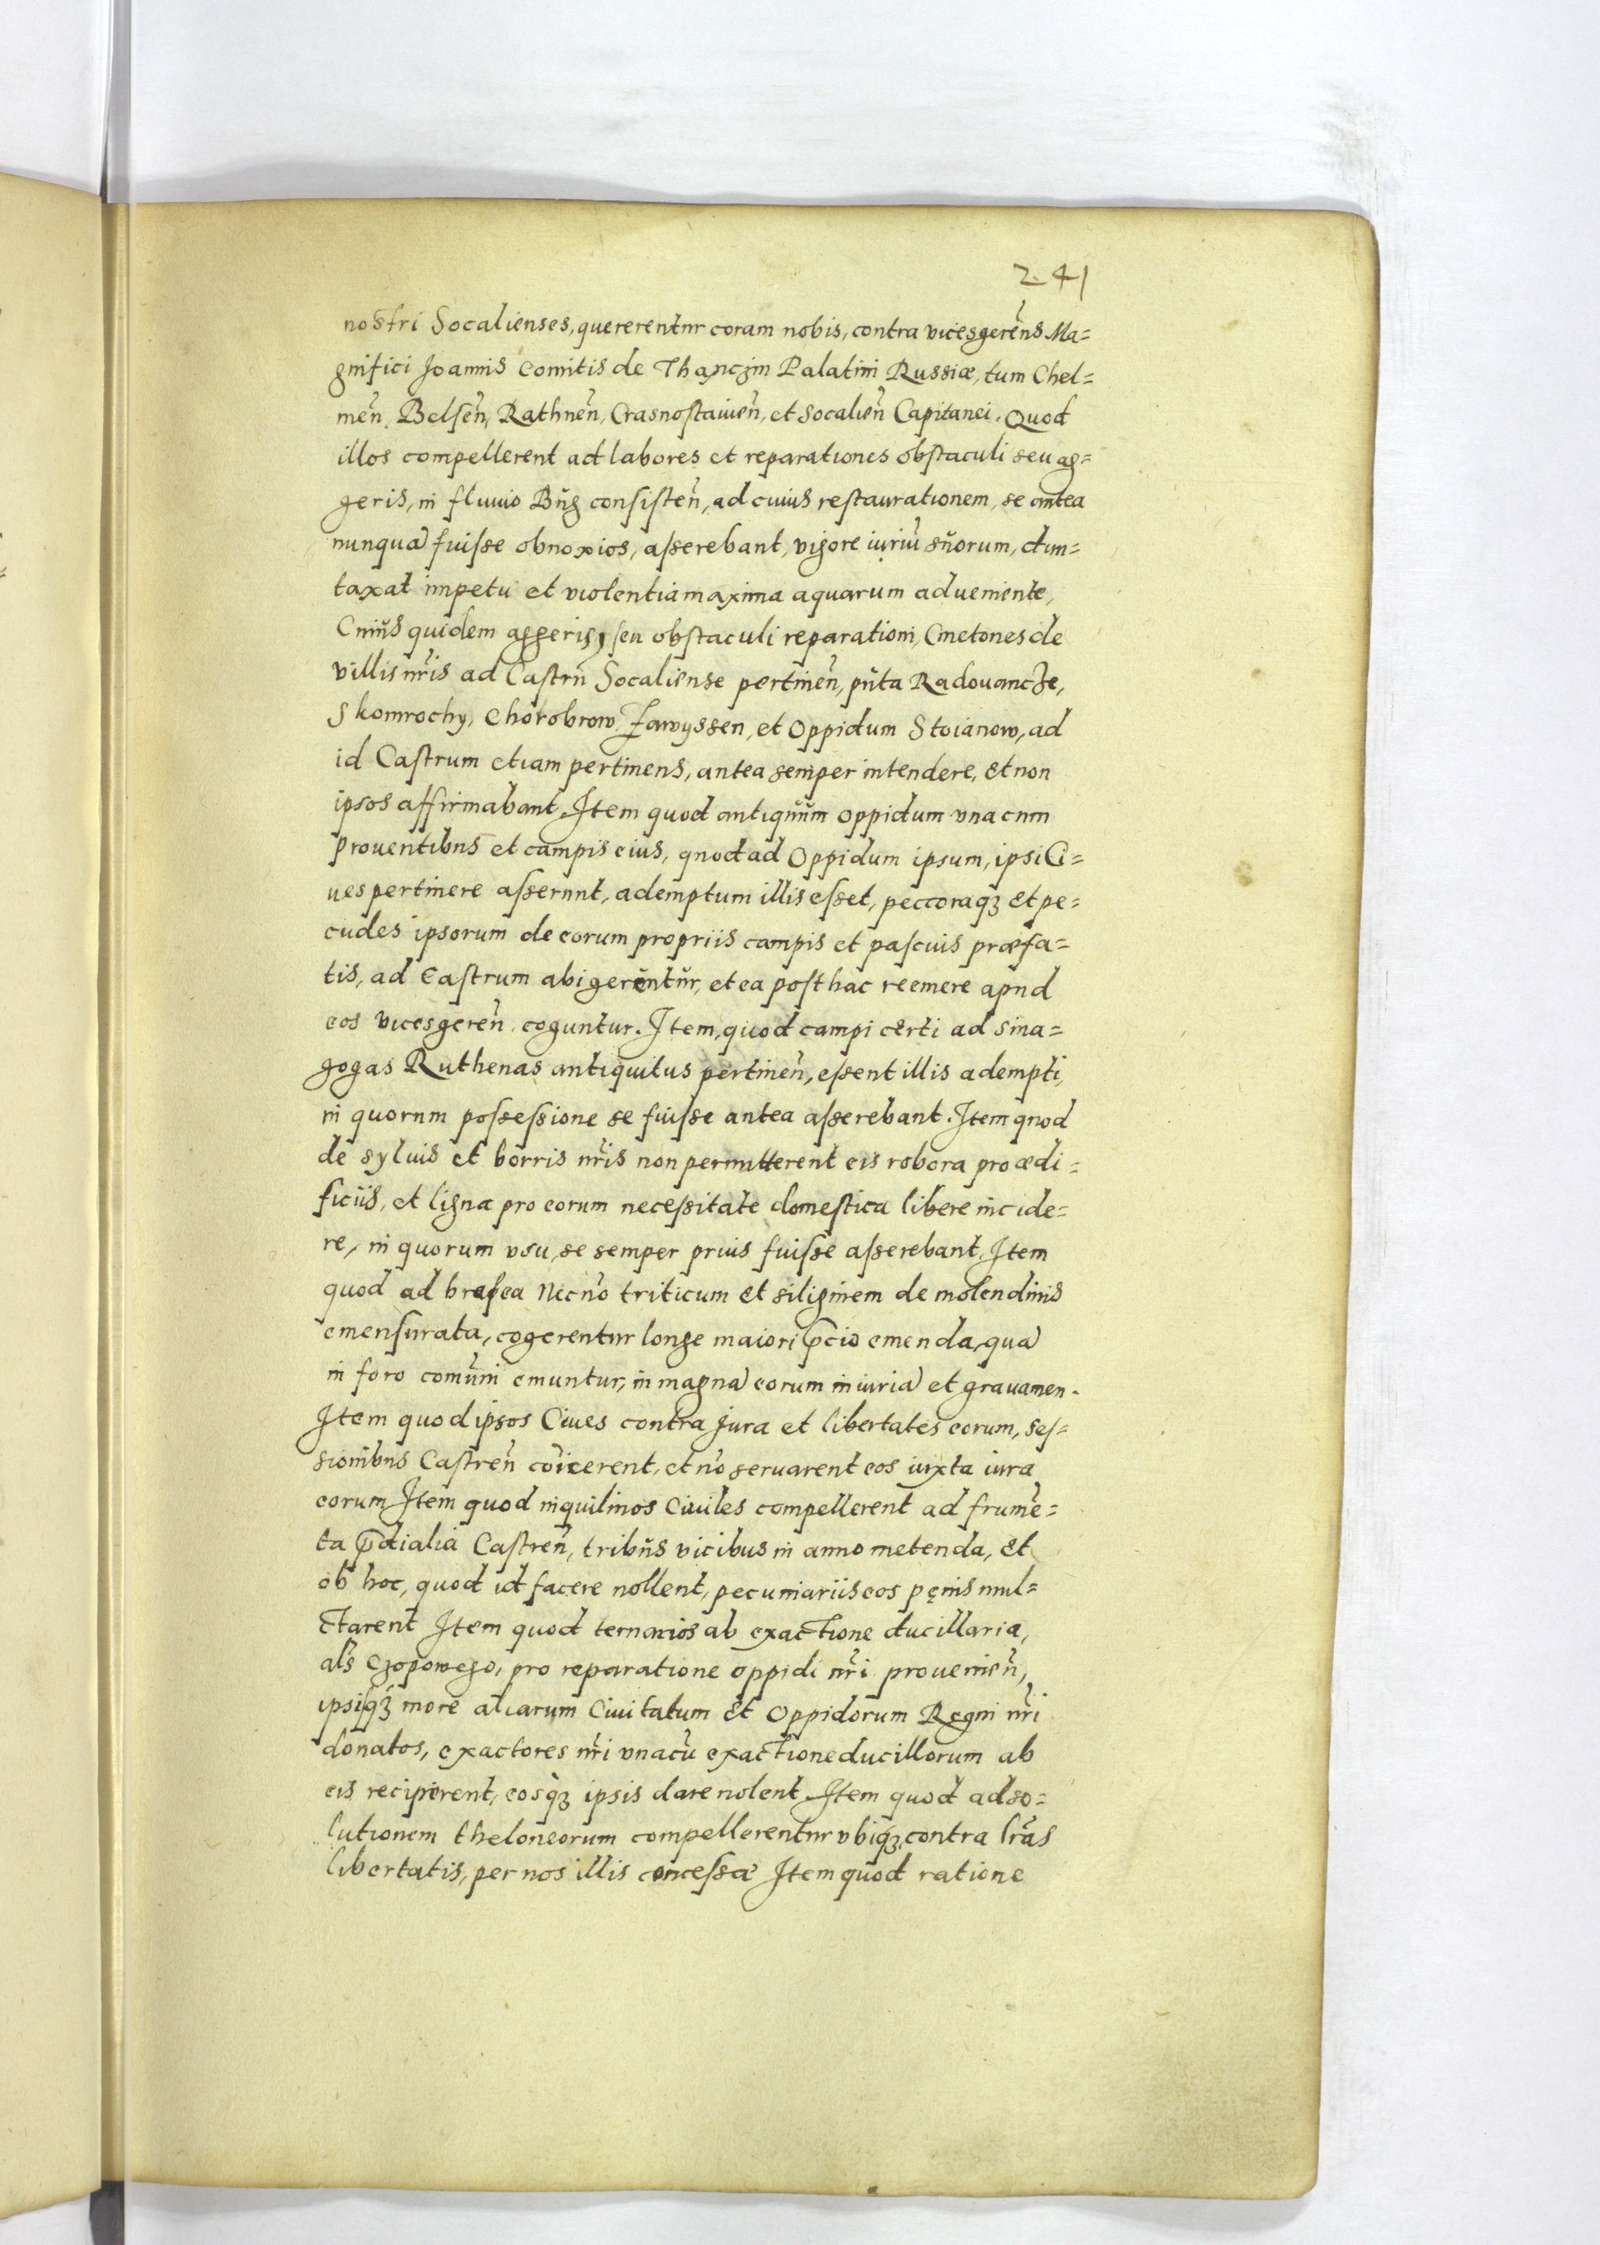 241
nostri Socalienses, quererentur coram nobis, contra vicesgereñs Ma=
gnifici Joannis Comitis de Thanczin Palatini Russiæ, tum Chel=
meñ, Belseñ, Rathneñ, Crasnostauieñ, et Socalieñ Capitanei. Quod
illos compellerent ad labores et reparationes obstaculi seu ag=
geris, in fluuio Bug consisteñ, ad cuius restaurationem, se antea
nunqua fuisse obnoxios, asserebant, vigore iuriu suorum, dun=
taxat impetu et violentia maxima aquarum adueniente,
Cuius quidem aggeris, seu obstaculi reparationi, Cmetones de
villis nris ad Castru Socaliense pertineñ, puta Radouancze,
Skomrochy, Chorobrow, Zawyssen, et Oppidum Stoianow, ad
id Castrum etiam pertinens, antea semper intendere, et non
ipsos affirmabant. Item quod antiquum oppidum vna cum
prouentibus et campis eius, quod ad Oppidum ipsum, ipsi Ci=
ues pertinere asserunt, ademptum illis esset, peccoraq; et pe=
cudes ipsorum de eorum propriis campis et pascuis præfa=
tis, ad Castrum abigerentur, et ea posthac reemere apud
eos vicesgereñ coguntur. Item, quod campi certi ad sina=
gogas Ruthenas antiquitus pertineñ, essent illis adempti,
in quorum possessione se fuisse antea asserebant. Item quod
de syluis et borris nris non permitterent eis robora pro ædi=
ficiis, et ligna pro eorum necessitate domestica libere incide=
re, in quorum vsu, se semper prius fuisse asserebant. Item
quod ad brasea Necno triticum et siliginem de molendinis
emensurata, cogerentur longe maiori p̄cio emenda, qua
in foro comuni emuntur, in magna eorum iniuria et grauamen.
Item quod ipsos Ciues contra Jura et libertates eorum, ses=
sionibus Castreñ coicerent, et no seruarent eos iuxta iura
eorum Item quod inquilinos Ciuiles compellerent ad frume=
ta p̄dialia Castreñ, tribus vicibus in anno metenda, et
ob hoc, quod id facere nollent, pecuniariis eos pęnis mul=
ctarent Item quod ternarios ab exactione ducillaria,
als Czopowego, pro reparatione oppidi nri prouenieñ,
ipsisq; more aliarum Ciuitatum et Oppidorum Regni nri
donatos, exactores nri vnacu exactione ducillorum ab
eis reciperent, eosq; ipsis dare nolent Item quod ad so=
lutionem theloneorum compellerentur vbiq; contra lras
libertatis, per nos illis concessæ Item quod ratione